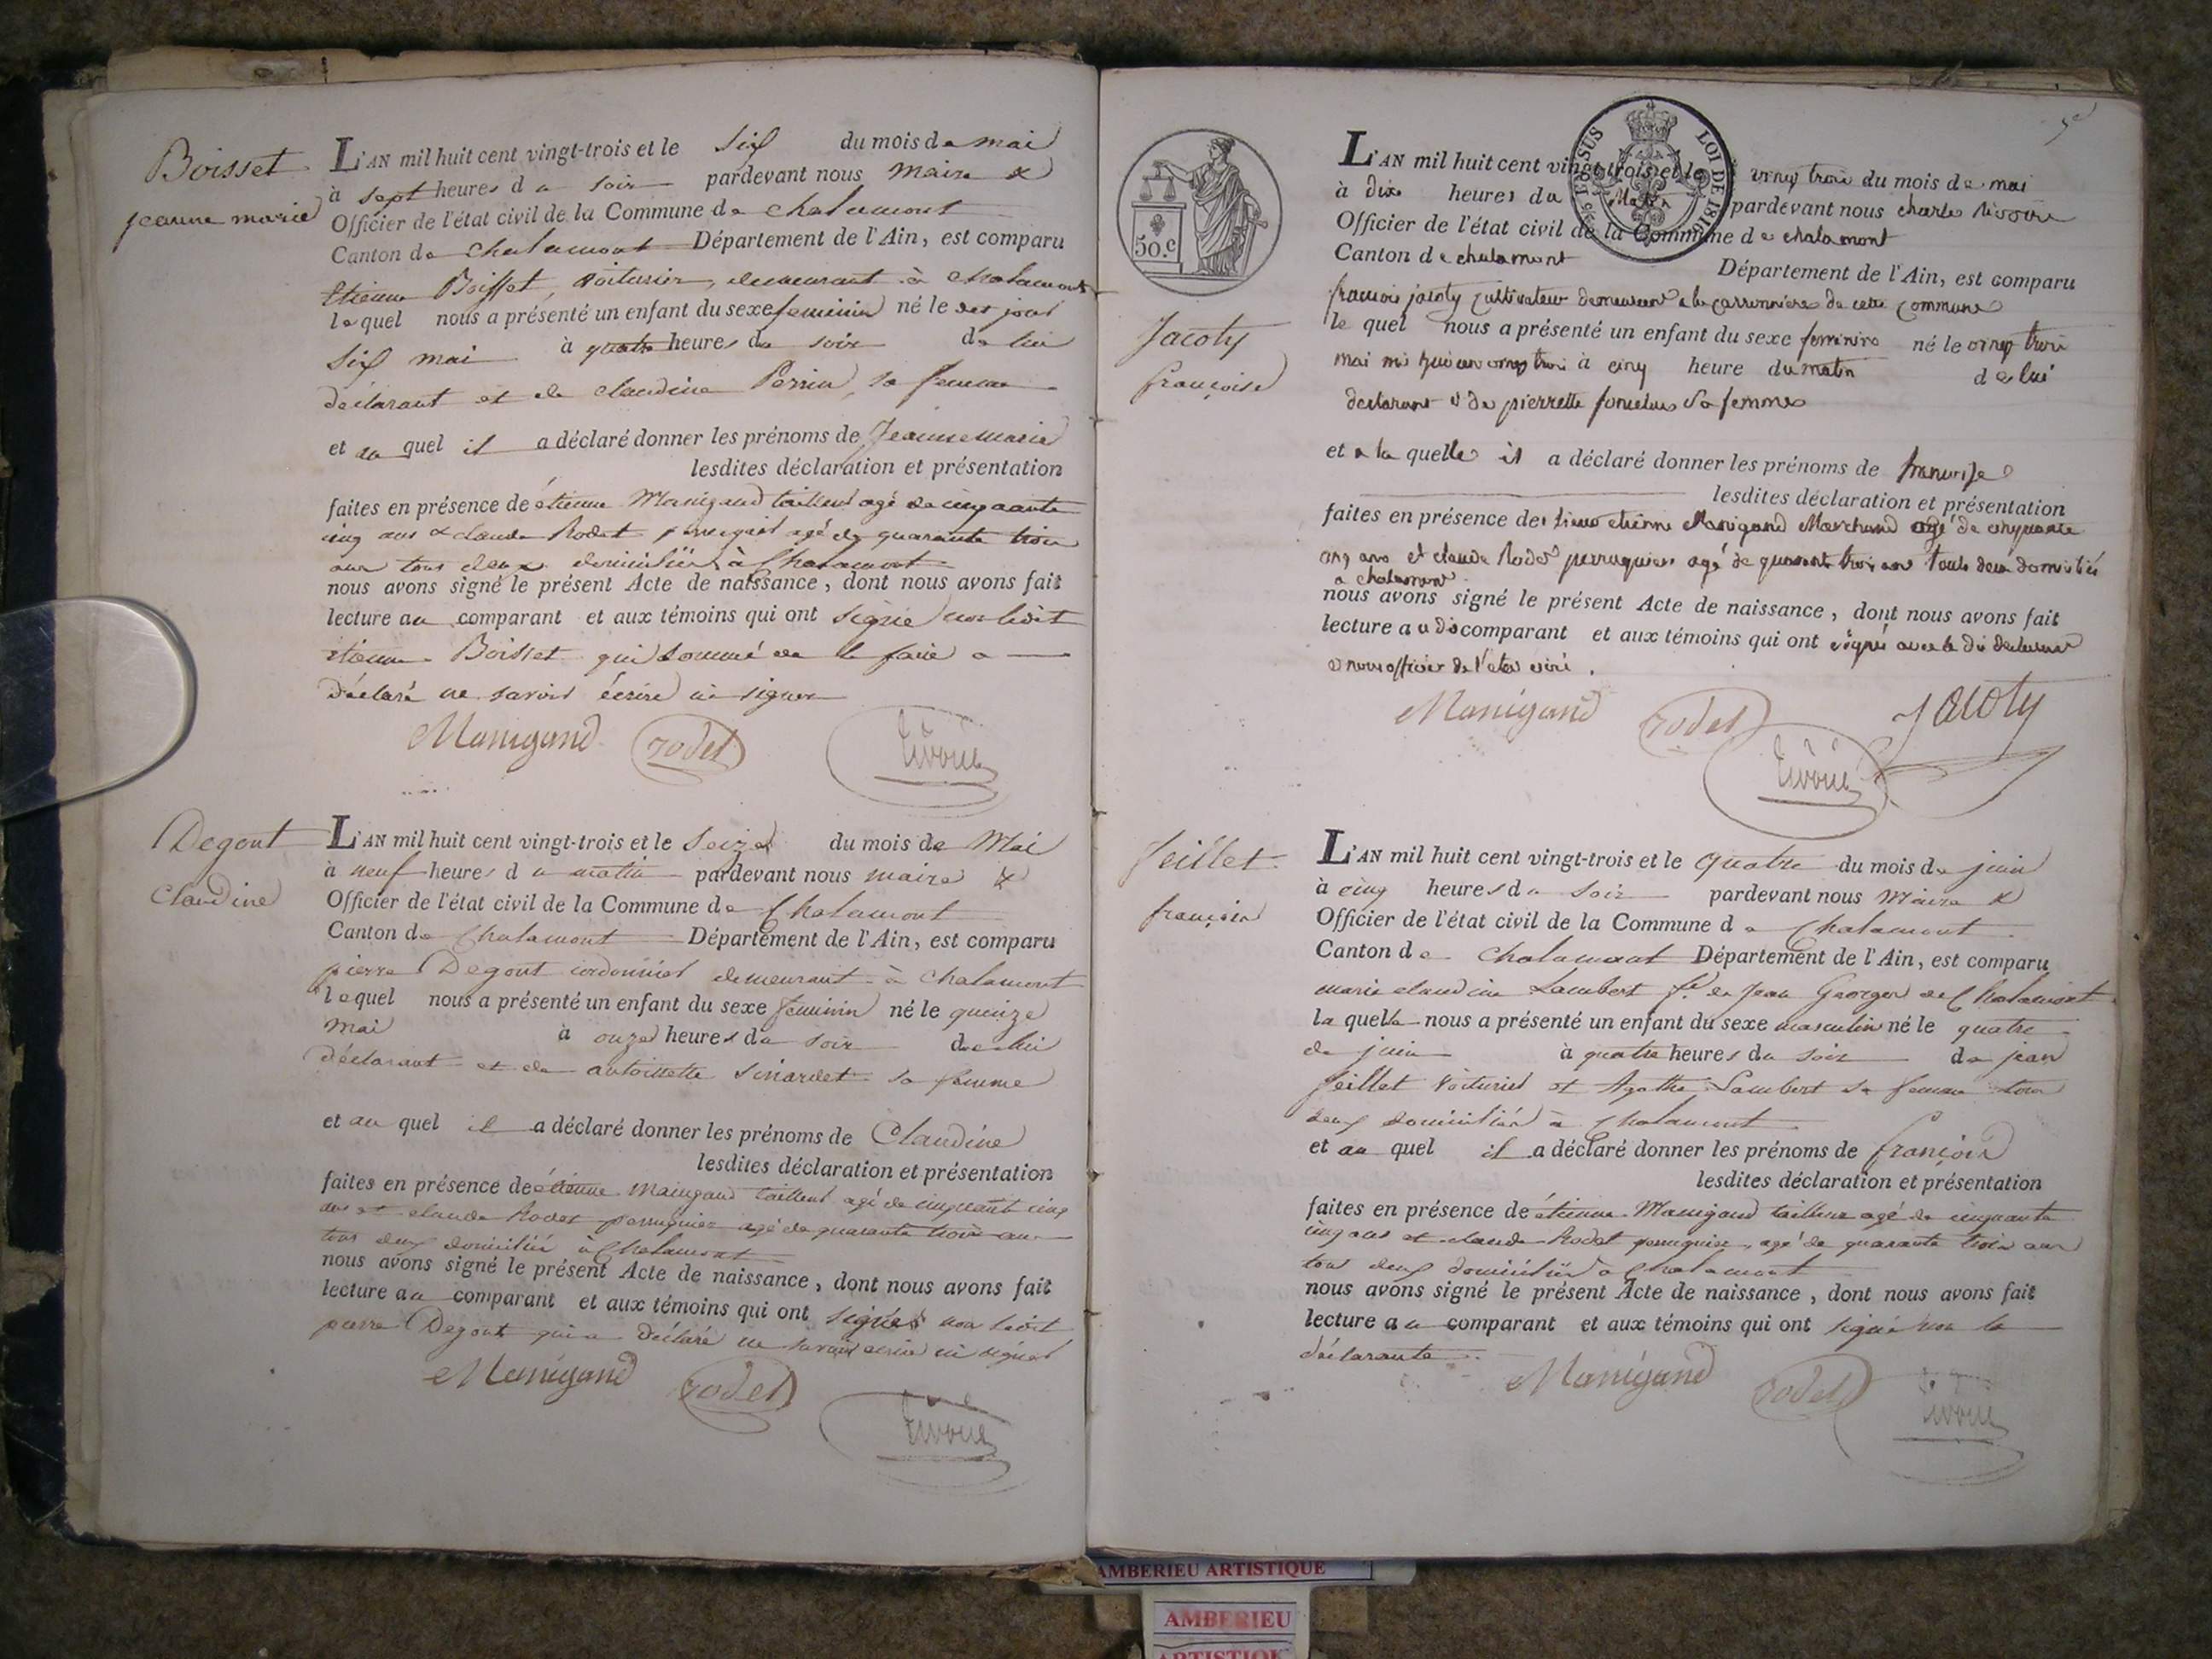 Boisset
jeanne marie
L'AN mil huit cent vingt-trois et le six du mois de mai
à sept heures du soir pardevant nous maire &
Officier de l'état civil de la Commune de chalamont
Canton de chalamont Département de l'Ain, est comparu
étienne Boisset, voiturier, demeurant à chalamont
lequel nous a présenté un enfant du sexe feminin né le
six mai à quatre heures du soir de lui
déclarant et de claudine Perrin sa femme
et au quel il a déclaré donner les prénoms de Jeanne marie
lesdites déclaration et présentation
faites en présence de étienne Manigand tailleur agé de cinquante
cinq ans & claude Rodet agé de quarante trois
ans tous deux domiciliés à Chalamont
nous avons signé le présent Acte de naissance, dont nous avons fait
lecture au comparant et aux témoins qui ont signé non ledit
étienne Boisset qui sommé de le faire a
déclaré ne savoir écrire ni signer
Manigand rodet rivoire
Degout
Claudine
L'AN mil huit cent vingt-trois et le seize du mois de Mai
à neuf heures du matin pardevant nous maire &
Officier de l'état civil de la Commune de Chalamont
Canton de Chalamont Département de l'Ain, est comparu
pierre Degout cordonnier demeurant à chalamont
lequel nous a présenté un enfant du sexe feminin né le quinze
mai à onze heures du soir de lui
déclarant et de antoinette sinardet sa femme
et au quel il a déclaré donner les prénoms de Claudine
lesdites déclaration et présentation
faites en présence de étienne Manigand tailleur agé de cinquante cinq
ans et claude Rodet perruquier agé de quarante trois ans
tous deux domiciliés à Chalamont
nous avons signé le présent Acte de naissance, dont nous avons fait
lecture au comparant et aux témoins qui ont signés non ledit
pierre Degout qui a déclaré ne savoir écrire ni signer
Manigand rodet rivoire
50.c
SUS LOI DE 1816
Jacoty
françoise
L'AN mil huit cent vingt-trois et le vingt trois du mois de mai
à dix heures du Matin pardevant nous charles rivoire
Officier de l'état civil de la Commune de chalamont
Canton de chalamont Département de l'Ain, est comparu
francois jacoty cultivateur demeurant a la carronniere de cette commune
le quel nous a présenté un enfant du sexe feminine né le vingt trois
mai mil huit cent vingt trois à cinq heure du matin de lui
declarant et de pierrette sa femme
et a la quelle il a déclaré donner les prénoms de francoise
lesdites déclaration et présentation
faites en présence de etienne Manigand Marchand agé de cinquante
cinq ans et claude Rodet perruquier agé de quarante trois ans touts deux domiciliés
a chalamont
nous avons signé le présent Acte de naissance, dont nous avons fait
lecture au dis comparant et aux témoins qui ont signé avec le dit declarant
et nous officier de l'etat civil.
Manigand rodet Jacoty
rivoire
feillet
françois
L'AN mil huit cent vingt-trois et le quatre du mois de juin
à cinq heures du soir pardevant nous Maire &
Officier de l'état civil de la Commune de Chalamont
Canton de chalamont Département de l'Ain, est comparu
marie claudine Lambert fe de Jean Georges de Chalamont
la quelle nous a présenté un enfant du sexe masculin né le quatre
de juin à quatre heures du soir de jean
feillet voiturier et Agathe Lambert sa femme tous
deux domiciliés à Chalamont
et au quel il a déclaré donner les prénoms de françois
lesdites déclaration et présentation
faites en présence de étienne Manigand tailleur agé de cinquante
cinq ans et claude Rodet perruquier, agé de quarante trois ans
tous deux domiciliés à Chalamont
nous avons signé le présent Acte de naissance, dont nous avons fait
lecture au comparant et aux témoins qui ont signé non la
déclarante.
Manigand rodet rivoire
AMBERIEU ARTISTIQUE
AMBERIEU
ARTISTIQUE